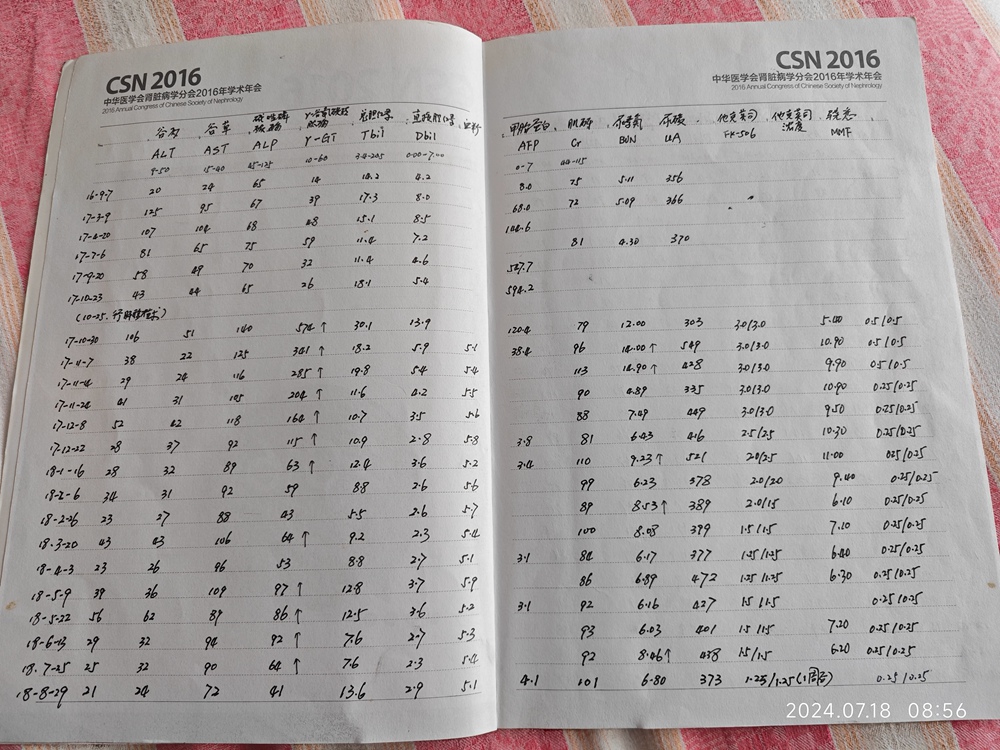 CSN 2016
中华医学会肾脏病学分会2016年学术年会
2016 Annual Congress of Chinese Society of Nephrology
谷丙 谷草 碱性磷酸酶 γ-谷氨酰转肽酶 总胆红素 直接胆红素
ALT AST ALP γ-GT Tbil Dbil
9-50 15-40 45-125 10-60 3.4-20.5 0.00-7.00
16-9-7 20 24 65 14 14.2 4.2
17-3-9 125 95 67 39 17.3 8.0
17-4-20 107 104 68 48 15.1 8.5
17-7-6 81 65 75 59 11.4 7.2
17-9-20 58 49 70 32 11.4 4.6
17-10-23 43 44 65 26 18.1 5.4
(10-25, 行肝移植术)
17-10-30 106 51 140 574↑ 30.1 13.9
17-11-7 38 22 125 341↑ 18.2 5.9 5.1
17-11-14 29 24 116 285↑ 19.8 5.4 5.4
17-11-24 41 31 105 204↑ 11.6 4.2 5.5
17-12-8 52 42 118 164↑ 10.7 3.5 5.6
17-12-22 28 37 92 115↑ 10.9 2.8 5.8
18-1-16 28 32 89 63↑ 12.4 3.6 5.2
18-2-6 34 31 92 59 8.8 2.6 5.6
18-2-26 23 27 88 43 5.5 2.6 5.7
18-3-20 43 43 106 64↑ 9.2 2.3 5.4
18-4-3 23 26 96 53 8.8 2.7 5.1
18-5-9 39 36 109 97↑ 12.8 3.7 5.9
18-5-22 56 62 89 86↑ 12.5 3.6 5.2
18-6-13 29 32 94 92↑ 7.6 2.7 5.3
18-7-25 25 32 90 64↑ 7.6 2.3 5.4
18-8-29 21 24 72 41 13.6 2.9 5.1
CSN 2016
中华医学会肾脏病学分会2016年学术年会
2016 Annual Congress of Chinese Society of Nephrology
甲胎蛋白 肌酐 尿素氮 尿酸 他克莫司 他克莫司浓度 骁悉
AFP Cr BUN UA FK-506 MMF
0-7 44-115
8.0 75 5.11 356
68.0 72 5.09 366
104.6
81 4.30 370
527.7
594.2
120.4 79 12.00 303 3.0/3.0 5.40 0.5/0.5
38.4 96 14.00↑ 549 3.0/3.0 10.90 0.5/0.5
113 14.90↑ 428 3.0/3.0 9.90 0.5/0.5
90 4.89 335 3.0/3.0 10.90 0.25/0.25
88 7.49 449 3.0/3.0 9.50 0.25/0.25
3.8 81 6.43 416 2.5/2.5 10.30 0.25/0.25
3.4 110 9.23↑ 521 2.0/2.5 11.00 0.25/0.25
99 6.23 378 2.0/2.0 9.40 0.25/0.25
89 8.53↑ 389 2.0/1.5 6.10 0.25/0.25
100 8.08 379 1.5/1.5 7.10 0.25/0.25
3.1 84 6.17 377 1.25/1.25 6.40 0.25/0.25
86 6.89 472 1.25/1.25 6.30 0.25/0.25
3.1 92 6.16 427 1.5/1.5 0.25/0.25
93 6.03 401 1.5/1.5 7.20 0.25/0.25
92 8.46↑ 438 1.5/1.5 6.20 0.25/0.25
4.1 101 6.80 373 1.25/1.25(1周后) 0.25/0.25
2024.07.18 08:56